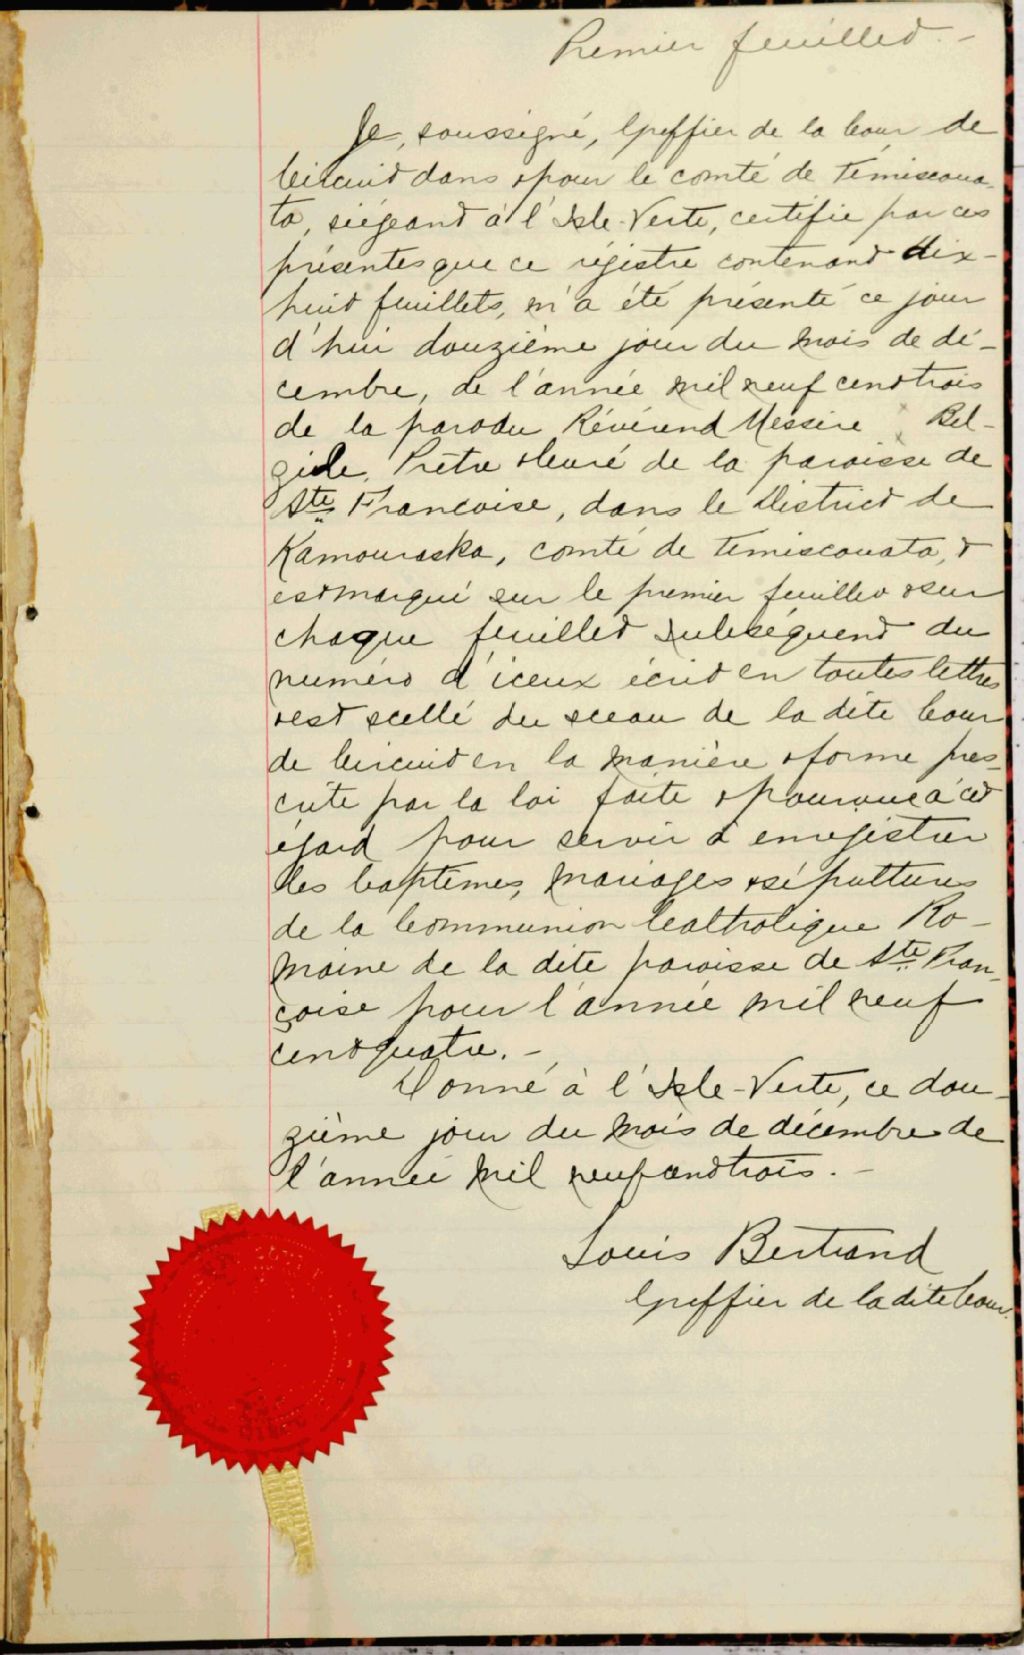 Premier feuillet. -
Je, soussigné, Greffier de la Cour de
Circuit dans & pour le comté de Témiscoua-
ta, siégeant à l'Isle-Verte, certifie par ces
présentes que ce régistre contenant dix-
huit feuillets, m'a été présenté ce jour
d'hui douzième jour du mois de dé-
cembre, de l'année mil neuf cent trois
de la part du Révérend Messire Bel-
zile, Prêtre & Curé de la paroisse de
Ste Françoise, dans le District de
Kamouraska, comté de Témiscouata, &
est marqué sur le premier feuillet & sur
chaque feuillet subséquent du
numéro d'iceux écrit en toutes lettres
& est scellé du sceau de la dite Cour
de Circuit en la manière & forme pres-
crite par la loi faite & pourvue à cet
égard pour servir à enregistrer
les baptêmes, mariages & sépultures
de la Communion Catholique Ro-
maine de la dite paroisse de Ste Fran-
çoise pour l'année mil neuf
cent quatre. -
Donné à l'Isle-Verte, ce dou-
zième jour du mois de décembre de
l'année mil neuf cent trois. -
Louis Bertrand
Greffier de la dite Cour.